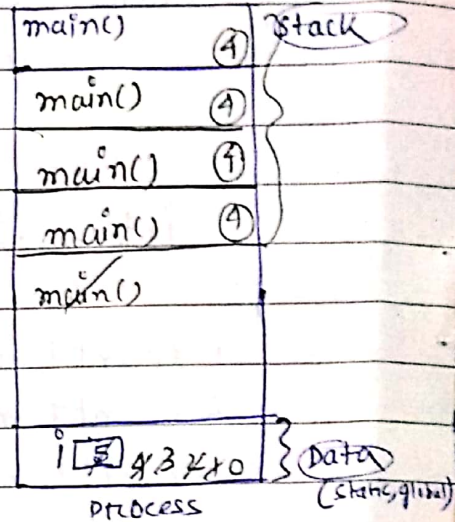 main() ④ Stack
main() ④
main() ④
main() ④
main()
i 5 4 3 2 1 0 } Data
(static, global)
process